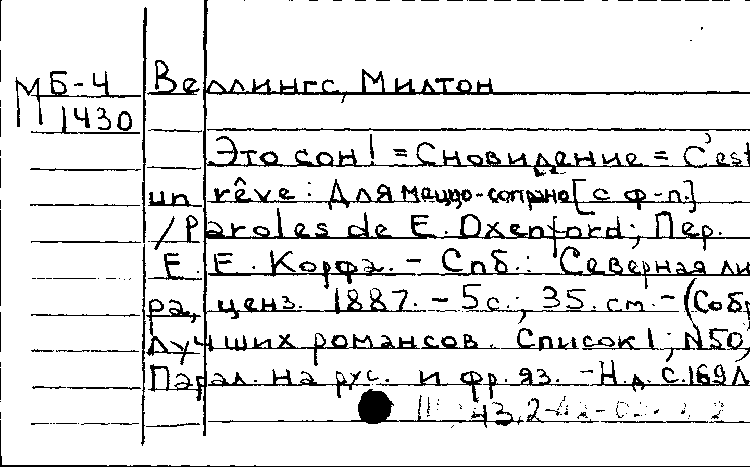 МБ-4 Веллингс, Милтон
1430
Это сон! = Сновидение = C'est
un rêve: Для меццо-сопрано [с ф-п.]
/ Paroles de E. Oxenford; Пер.
Е. Е. Корфа. - Спб.: Северная ли
ра, ценз. 1887. - 5с.; 35. см. - (Собр
лучших романсов. Список 1; N50,
Парал. на рус. и фр. яз. - Н.д. С.169Л